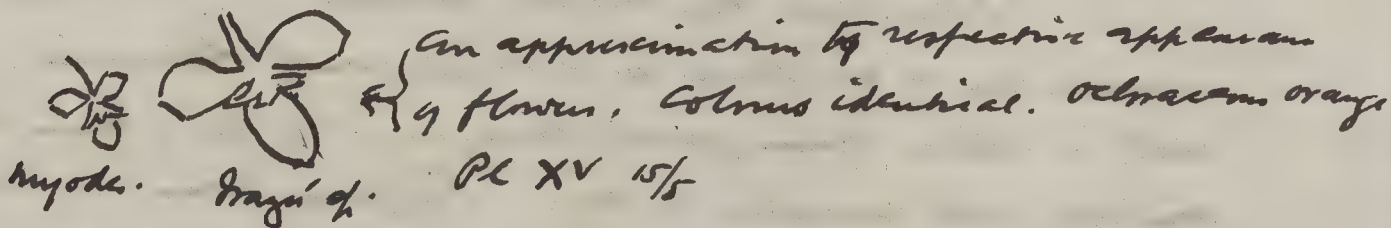 An approximation of respective appearance
of flowers. Colours identical. Ochraceous orange
myodes. Irazú sp. Pl XV 15/5